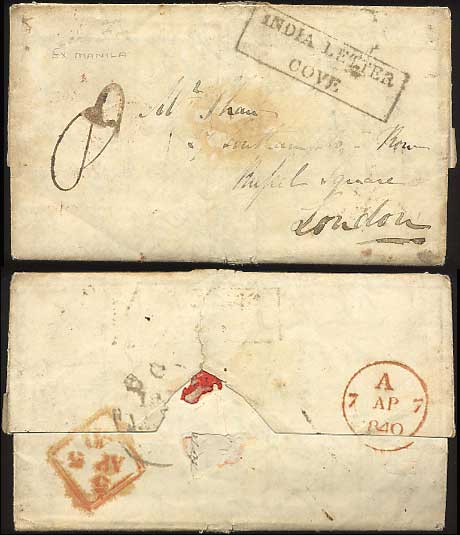 EX MANILA
INDIA LETTER
COVE
8
Mr Shaw
Southampton Row
Russel Square
London
A
7 AP 7
1840
AP